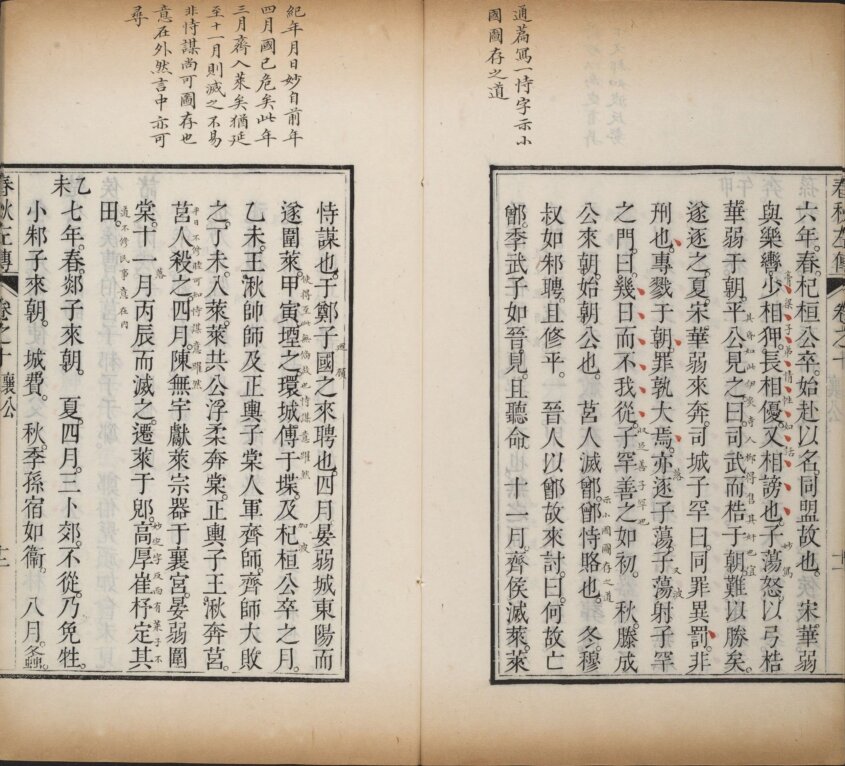 通篇寫一恃字示小
國圖存之道
春秋左傳 卷之十 襄公
六年。春。杞桓公卒。始赴以名。同盟故也。 宋華弱
與樂轡。少相狎。長相優。又相謗也。子蕩怒。以弓梏
華弱于朝。平公見之曰。司武而梏于朝。難以勝矣。
遂逐之。夏。宋華弱來奔。司城子罕曰。同罪異罰。非
刑也。專戮于朝。罪孰大焉。亦逐子蕩。子蕩射子罕
落
又波
之門。曰。幾日而不我從。子罕善之如初。 秋。滕成
公來朝。始朝公也。 莒人滅鄫。鄫恃賂也。 冬。穆
示小國圖存之道
叔如邾聘。且修平。 晉人以鄫故來討。曰。何故亡
鄫。季武子如晉。見。且聽命。 十一月。齊侯滅萊。萊
紀年月日妙自前年
四月國已危矣此年
三月齊入萊矣猶延
至十一月則滅之不易
非恃謀尚可圖存也
意在外然言中亦可
尋
恃謀也。于鄭子國之來聘也。四月。晏弱城東陽。而
遂圍萊。甲寅。堙之環城。傅于堞。及杞桓公卒之月。
加波
乙未。王湫帥師及正輿子棠人軍齊師。齊師大敗
之。丁未。入萊。萊共公浮柔奔棠。正輿子王湫奔莒。
莒人殺之。四月。陳無宇獻萊宗器于襄宮。晏弱圍
落
棠。十一月丙辰而滅之。遷萊于郳。高厚崔杼定其
田。
乙未
七年。春。郯子來朝。 夏。四月。三卜郊。不從。乃免牲。
小邾子來朝。 城費。 秋。季孫宿如衛。 八月。螽。
春秋左傳 卷之十 襄公